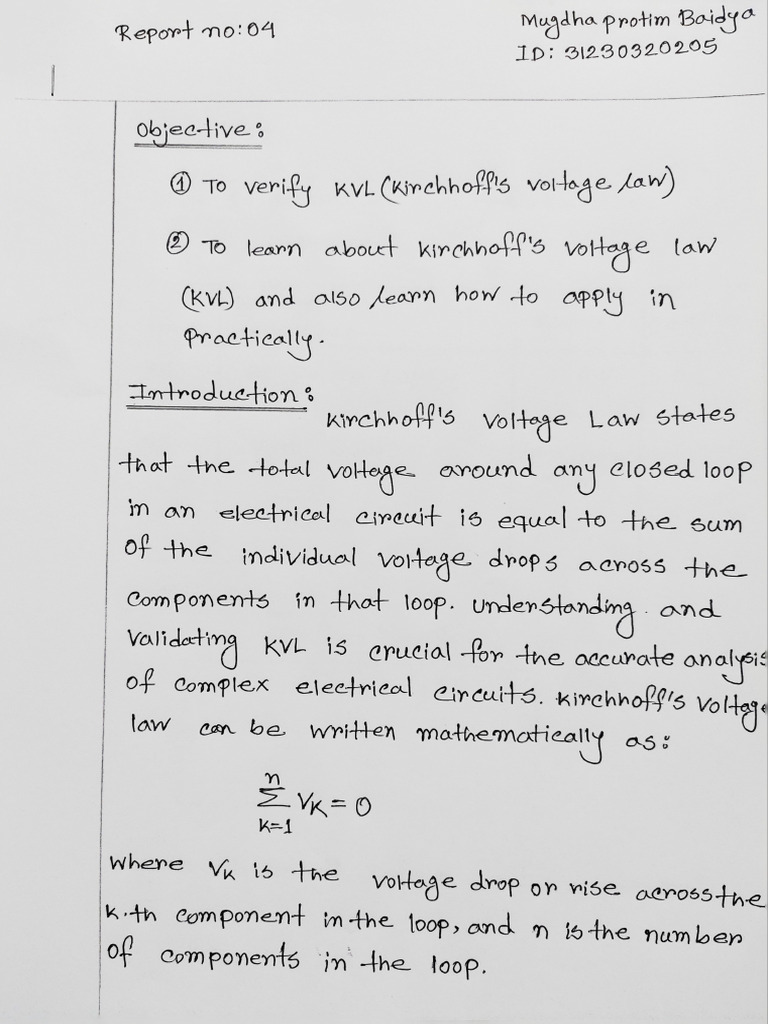 Report no:04
Mugdha protim Baidya
ID: 31230320205
Objective:
① To verify KVL (Kirchhoff's voltage law)
② To learn about Kirchhoff's voltage law
(KVL) and also learn how to apply in
Practically.
Introduction:
Kirchhoff's Voltage Law states
that the total voltage around any closed loop
in an electrical circuit is equal to the sum
of the individual voltage drops across the
components in that loop. Understanding and
validating KVL is crucial for the accurate analysis
of complex electrical circuits. Kirchhoff's Voltage
law can be written mathematically as:
n
∑ VK = 0
k=1
where VK is the voltage drop or rise across the
K.th component in the loop, and n is the number
of components in the loop.